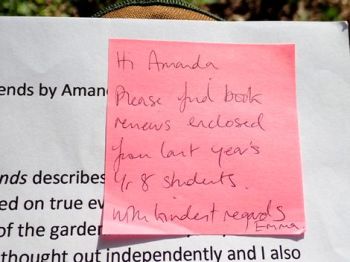 Hi Amanda
Please find book
reviews enclosed
from last year's
Yr 8 students.
with kindest regards
Emma
ends by Aman
nds describes
ed on true ev
of the garder
thought out independently and I also